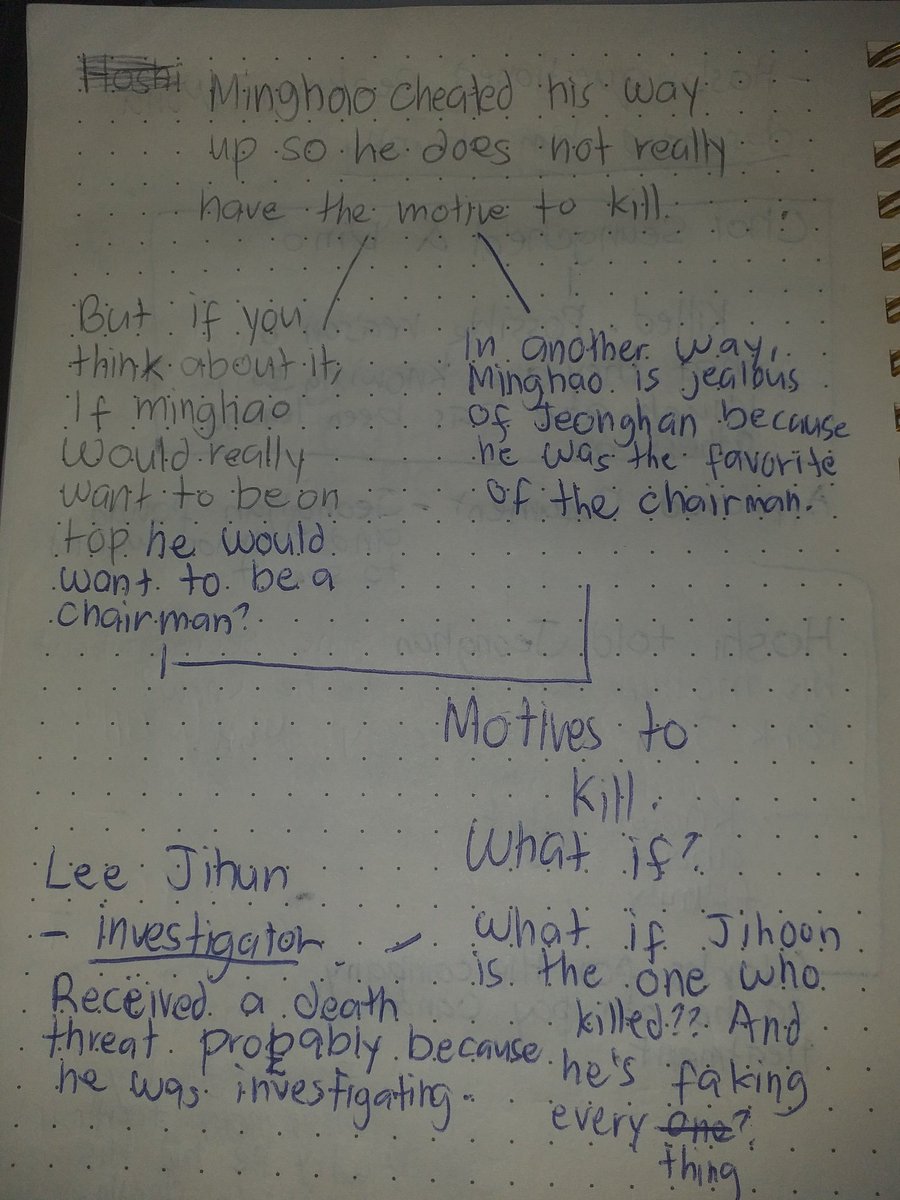 Hoshi
Minghao cheated his way
up so he does not really
have the motive to kill.
But if you
think about it,
If minghao
would really
want to be on
top he would
want to be a
chairman?
In another way,
Minghao is jealous
of Jeonghan because
he was the favorite
of the chairman.
Motives to
kill.
What if?
Lee Jihun
- investigator
Received a death
threat probably because
he was investigating.
What if Jihoon
is the one who
killed?? And
he's faking
every one?
thing